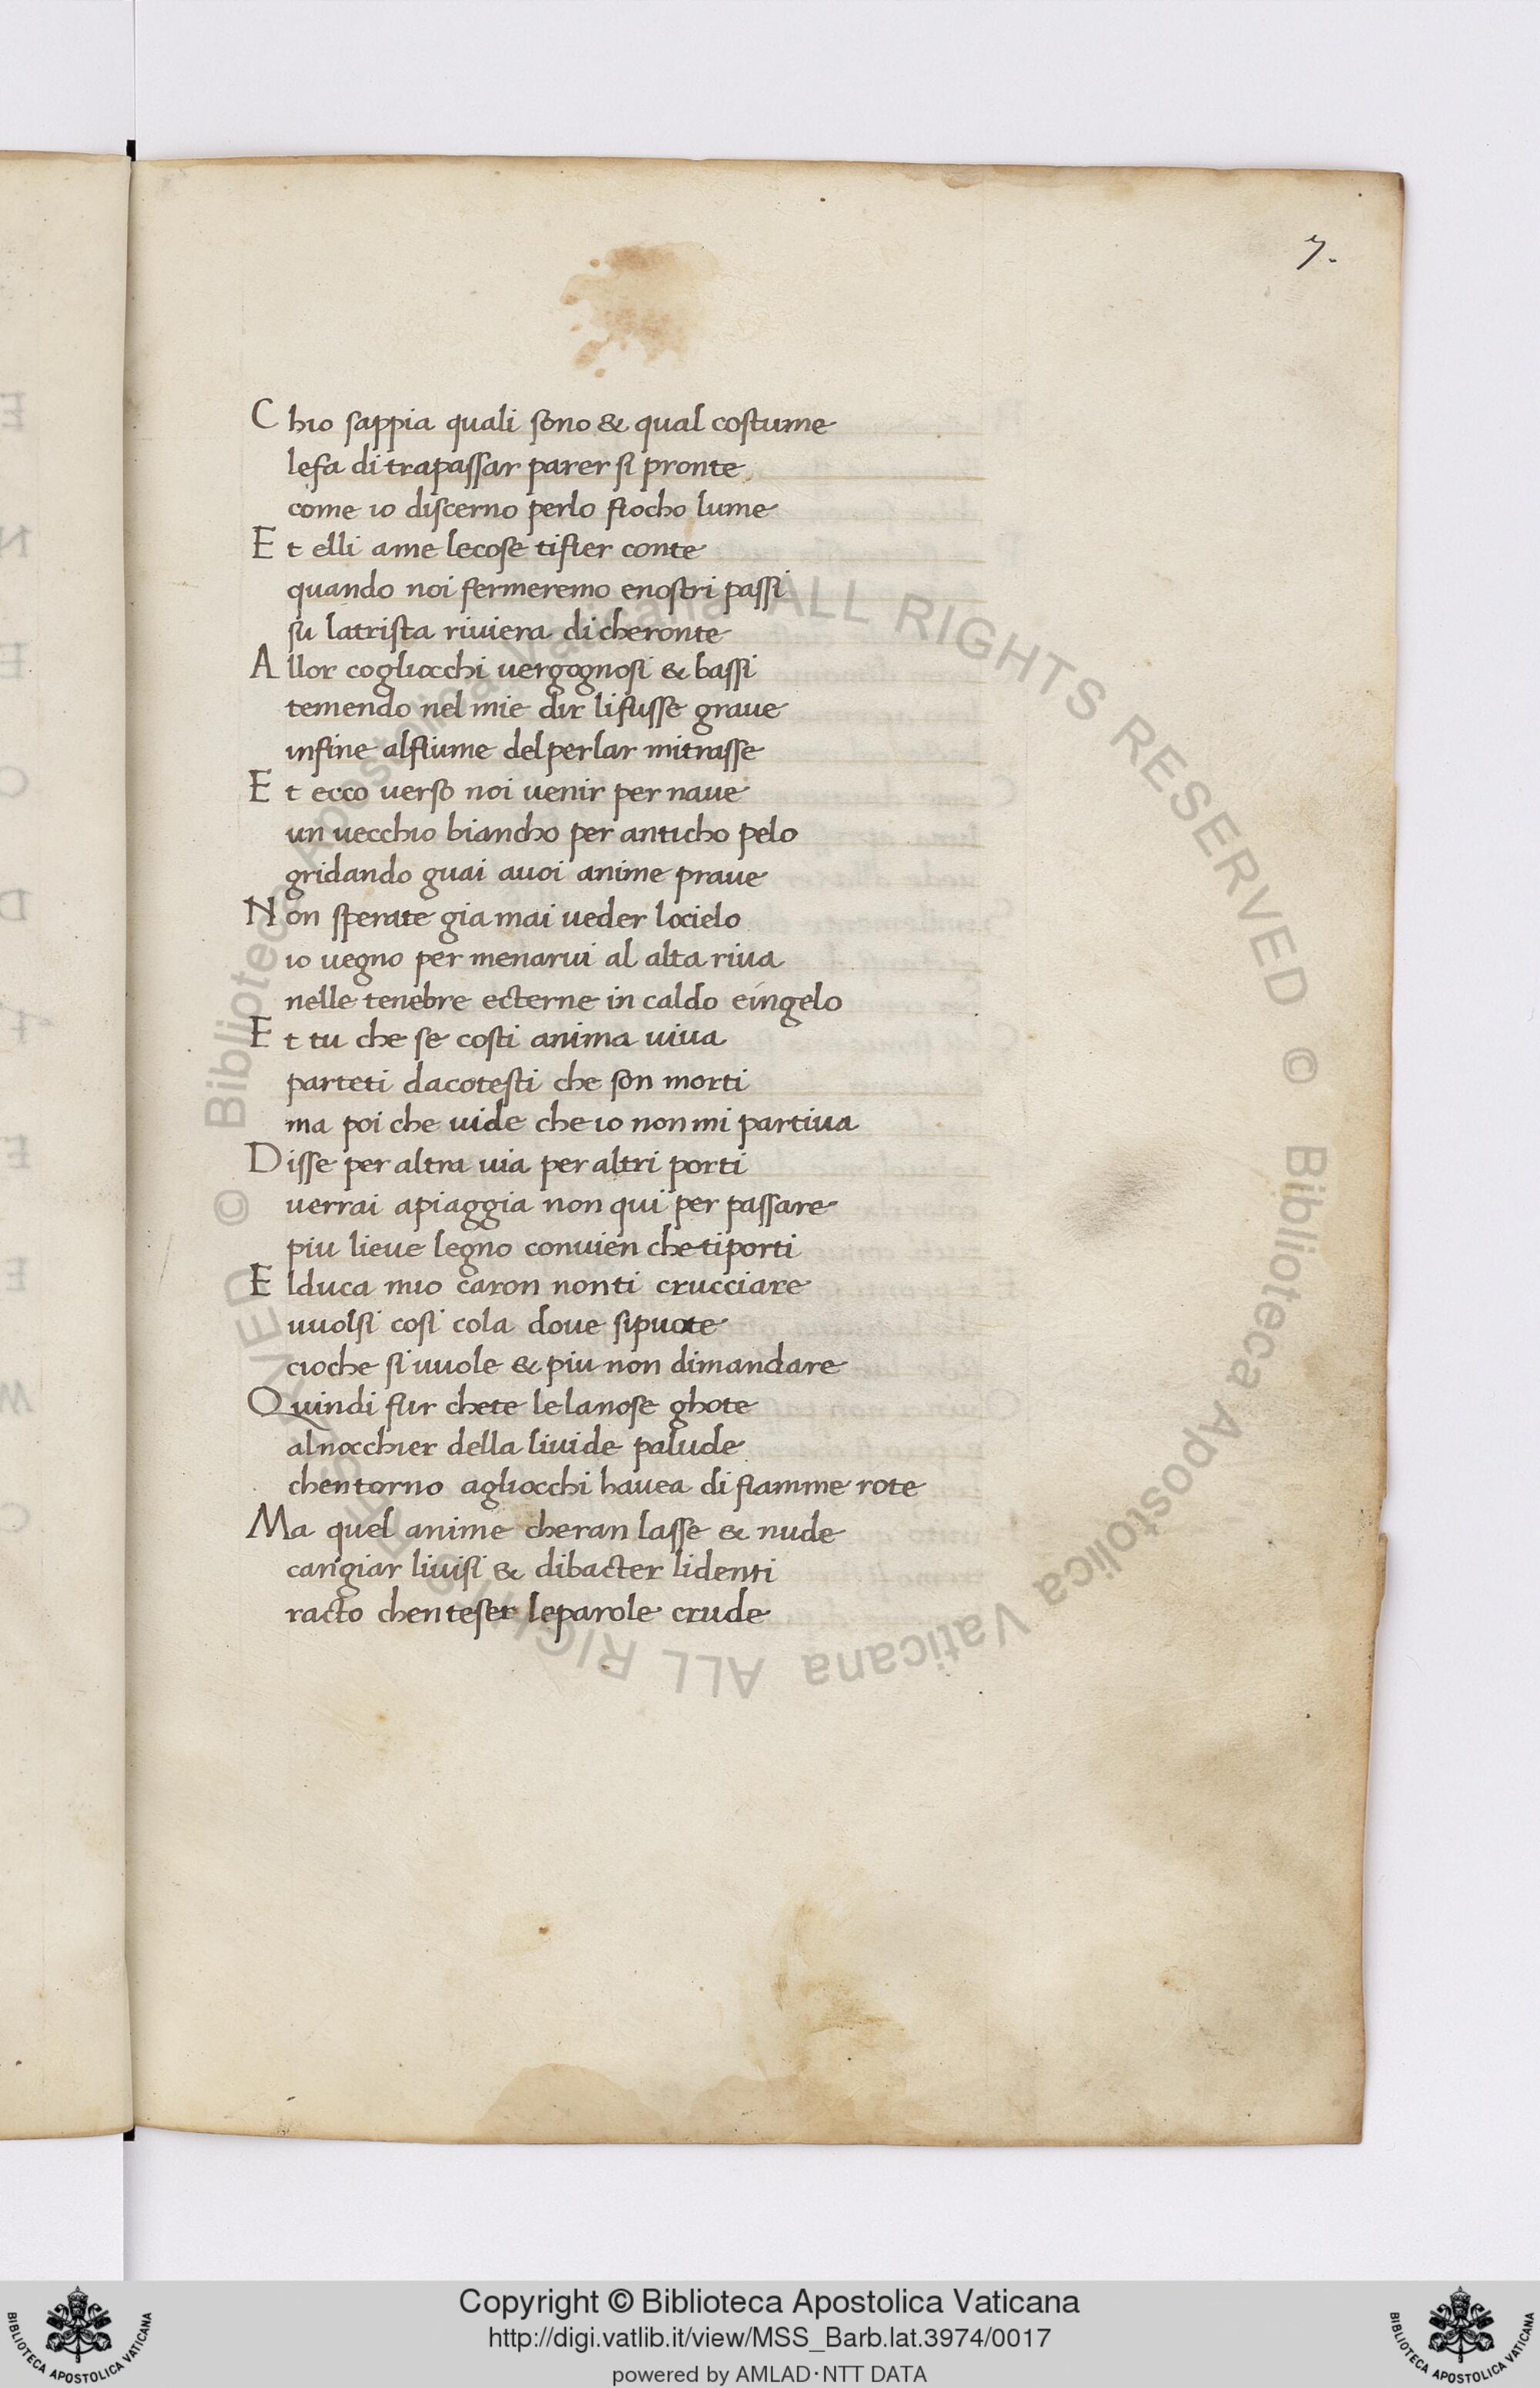 7.
Chio sappia quali sono & qual costume
lefa di trapassar parer si pronte
come io discerno perlo fiocho lume
Et elli ame lecose tifier conte
quando noi fermeremo enostri passi
su latrista riuiera dicheronte
Allor cogliocchi uergognosi & bassi
temendo nel mie dir lifusse graue
infine alfiume delperlar mitrasse
Et ecco uerso noi uenir per naue
un uecchio biancho per anticho pelo
gridando guai auoi anime praue
Non sperate gia mai ueder locielo
io uegno per menarui al alta riua
nelle tenebre ecterne in caldo eingelo
Et tu che se costi anima uiua
parteti dacotesti che son morti
ma poi che uide che io non mi partiua
Disse per altra uia per altri porti
uerrai apiaggia non qui per passare
piu lieue legno conuien che tiporti
Elduca mio caron nonti crucciare
uuolsi cosi cola doue sipuote
cioche si uuole & piu non dimandare
Quindi fur chete le lanose ghote
alnocchier della liuide palude
chentorno agliocchi hauea di fiamme rote
Ma quel anime cheran lasse & nude
cangiar liuisi & dibacter lidenti
racto chenteser leparole crude
Biblioteca Apostolica Vaticana ALL RIGHTS RESERVED © Biblioteca Apostolica Vaticana ALL RIGHTS RESERVED ©
Copyright © Biblioteca Apostolica Vaticana
http://digi.vatlib.it/view/MSS_Barb.lat.3974/0017
powered by AMLAD·NTT DATA
BIBLIOTECA APOSTOLICA VATICANA
BIBLIOTECA APOSTOLICA VATICANA